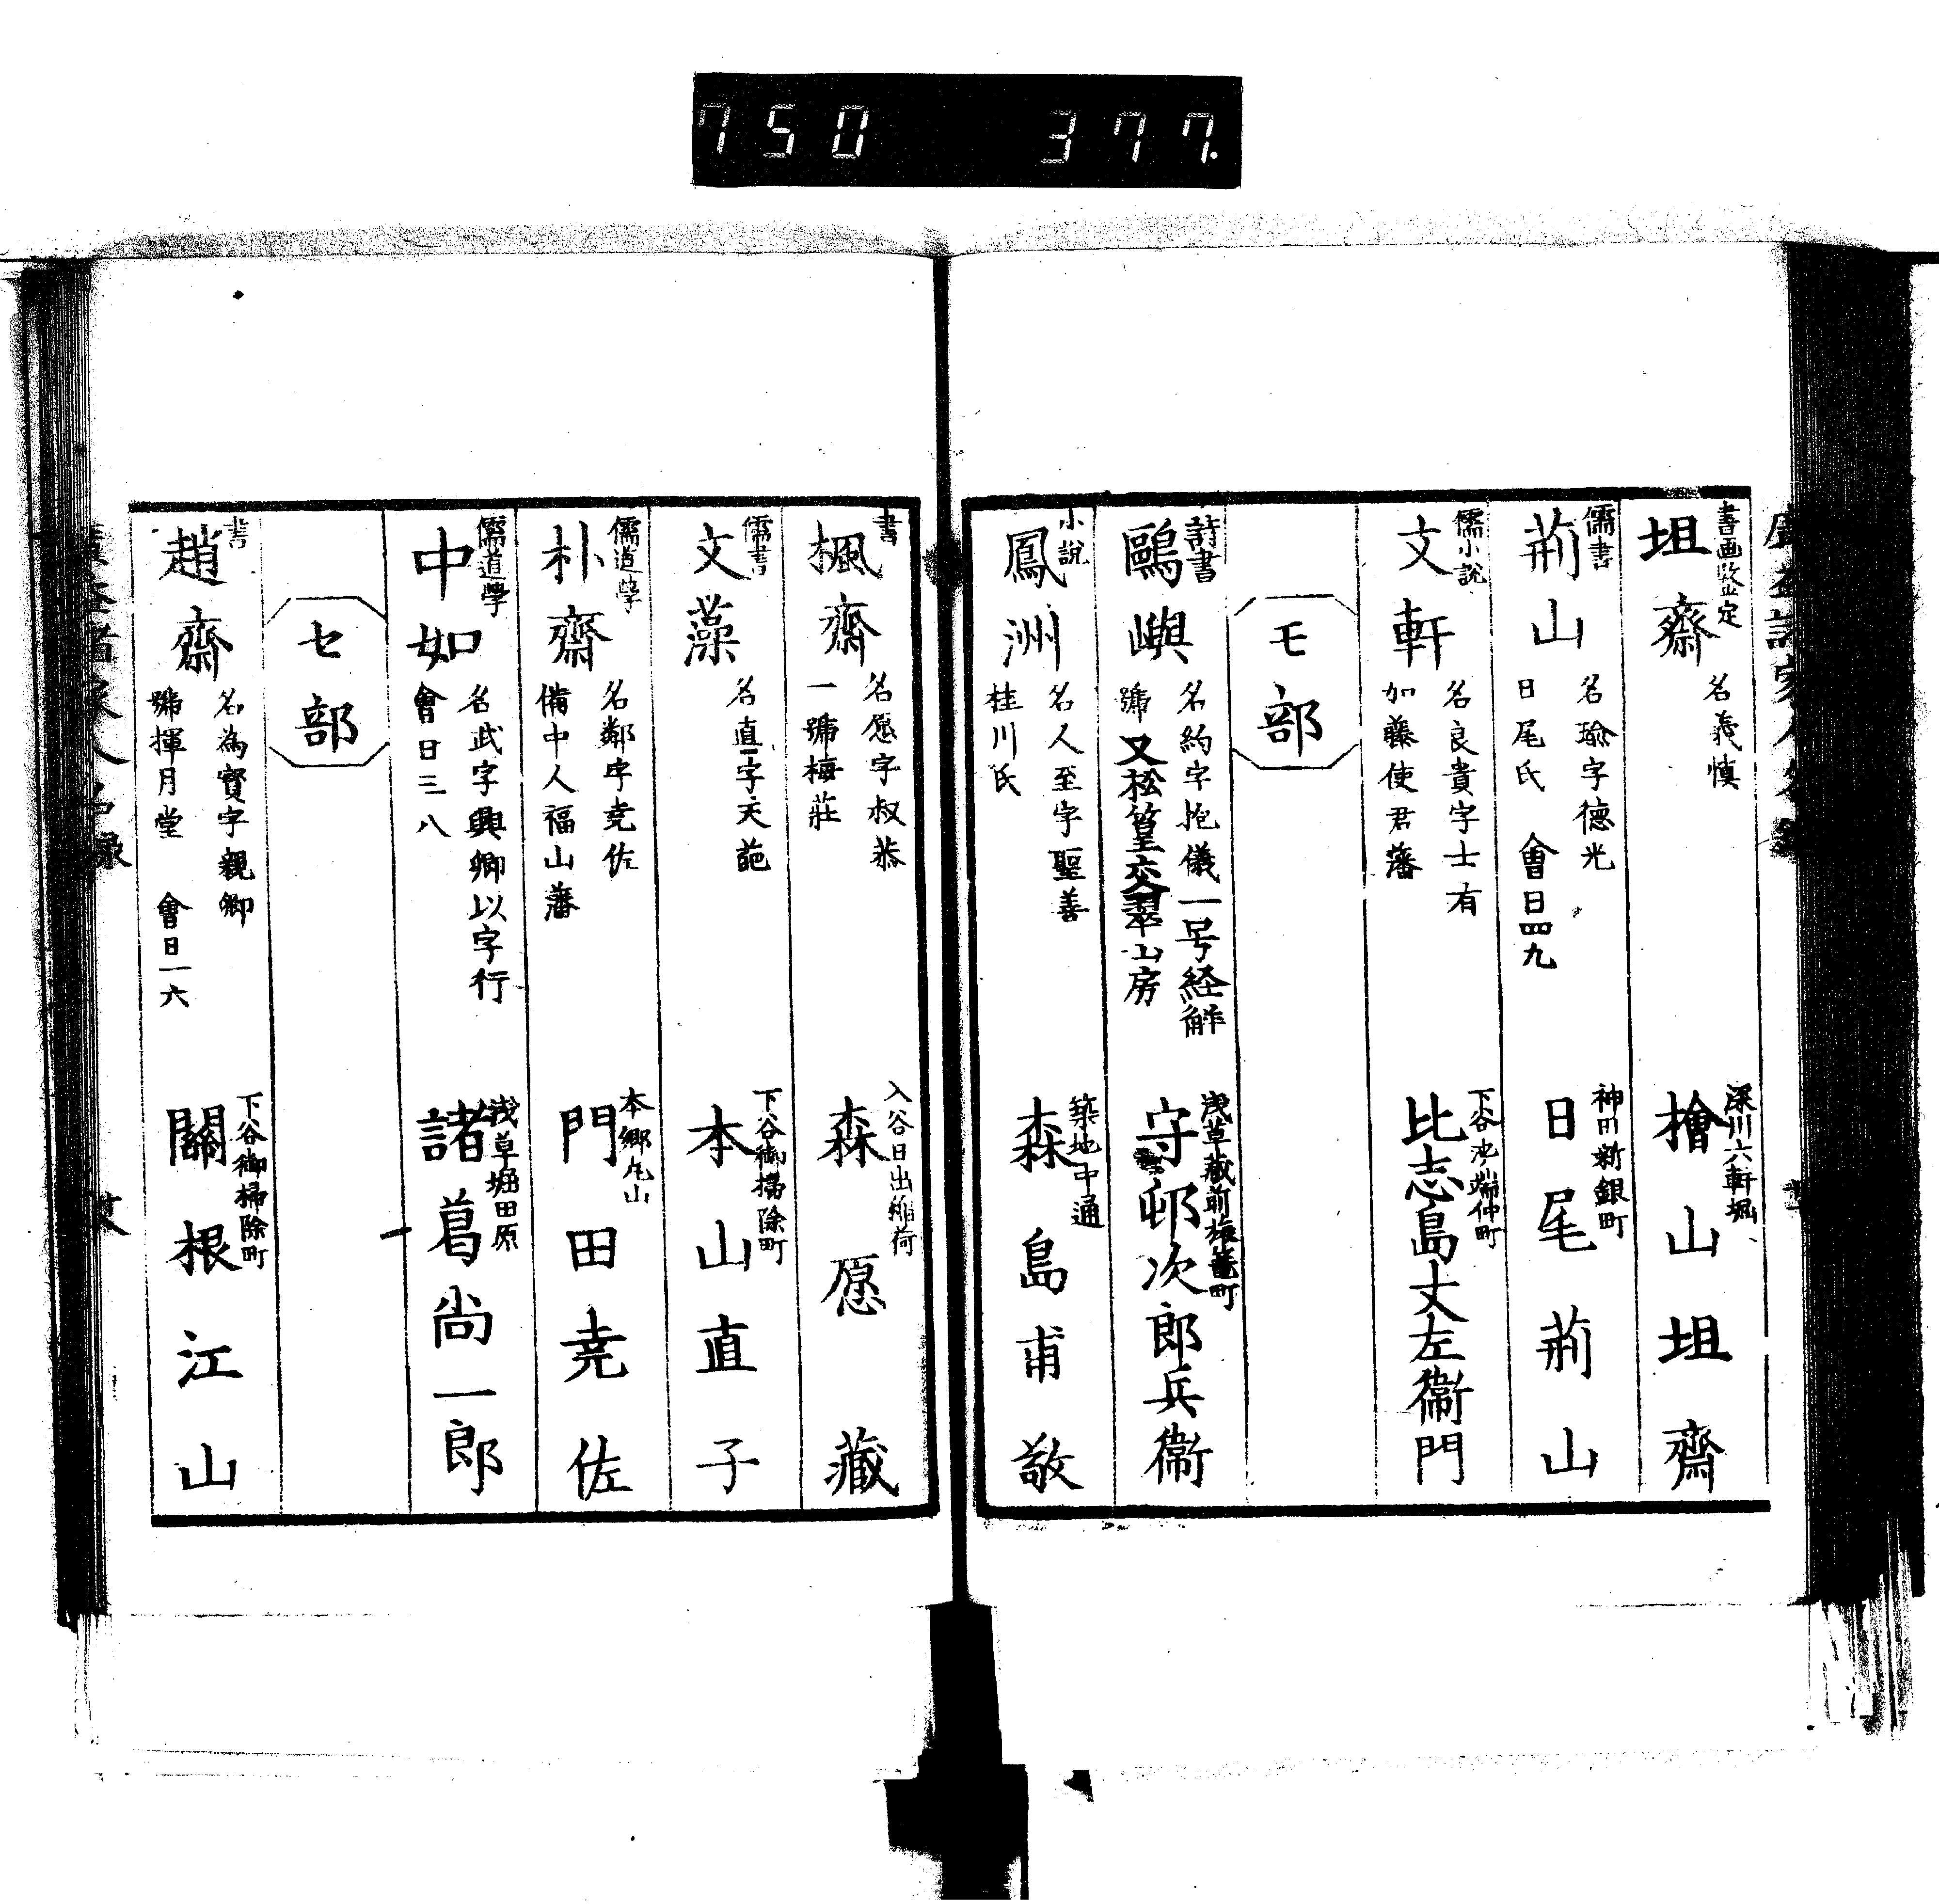 750 377.
書画鑒定
坦齋
名義慎
深川六軒堀
檜山坦齋
儒書
荊山
名瑜字德光
日尾氏 會日四九
神田新銀町
日尾荊山
儒小說
文軒
名良貴字士有
加藤使君藩
下谷池端仲町
比志島文左衞門
モ部
詩書
鷗嶼
名約字抱儀一号経解
號又松篁交翠山房
浅草蔵前
守邨次郎兵衞
小說
鳳洲
名人至字聖善
桂川氏
築地中通
森島甫敬
書
楓齋
名愿字叔恭
一號梅莊
入谷日出稲荷
森愿藏
儒書
文藻
名直一字天葩
下谷御掃除町
本山直子
儒道學
朴齋
名鄰字尭佐
備中人福山藩
本郷丸山
門田尭佐
儒道學
中如
名武字興卿以字行
會日三八
浅草堀田原
諸葛尚一郎
セ部
書
趙齋
名為寳字親卿
號揮月堂 會日一六
下谷御掃除町
關根江山